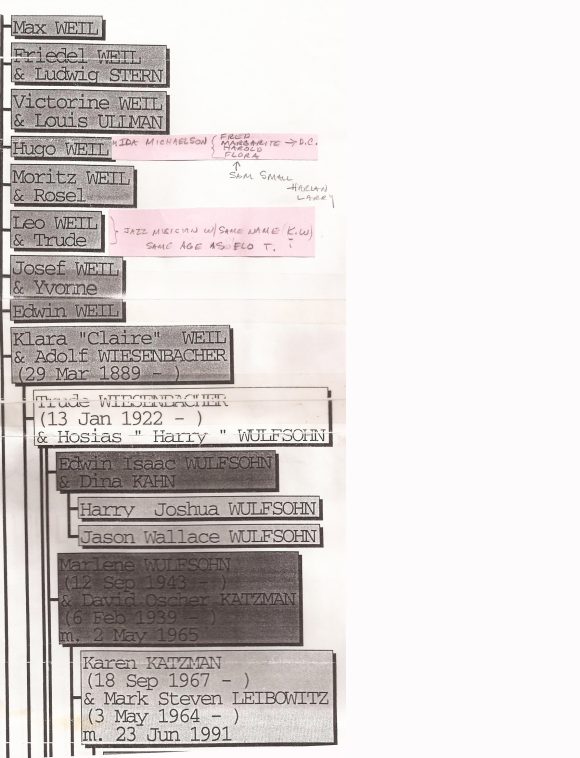 Max WEIL
Friedel WEIL
& Ludwig STERN
Victorine WEIL
& Louis ULLMAN
Hugo WEIL
IDA MICHAELSON { FRED
MARGARITE → D.C.
HAROLD
FLORA
↑
SAM SMALL
HARLAN
LARRY
Moritz WEIL
& Rosel
Leo WEIL
& Trude
} JAZZ MUSICIAN W/ SAME NAME (K.W)
SAME AGE AS FLO T.
Josef WEIL
& Yvonne
Edwin WEIL
Klara "Claire" WEIL
& Adolf WIESENBACHER
(29 Mar 1889 - )
Trude WIESENBACHER
(13 Jan 1922 - )
& Hosias " Harry " WULFSOHN
Edwin Isaac WULFSOHN
& Dina KAHN
Harry Joshua WULFSOHN
Jason Wallace WULFSOHN
Marlene WULFSOHN
(12 Sep 1943 - )
& David Oscher KATZMAN
(6 Feb 1939 - )
m. 2 May 1965
Karen KATZMAN
(18 Sep 1967 - )
& Mark Steven LEIBOWITZ
(3 May 1964 - )
m. 23 Jun 1991